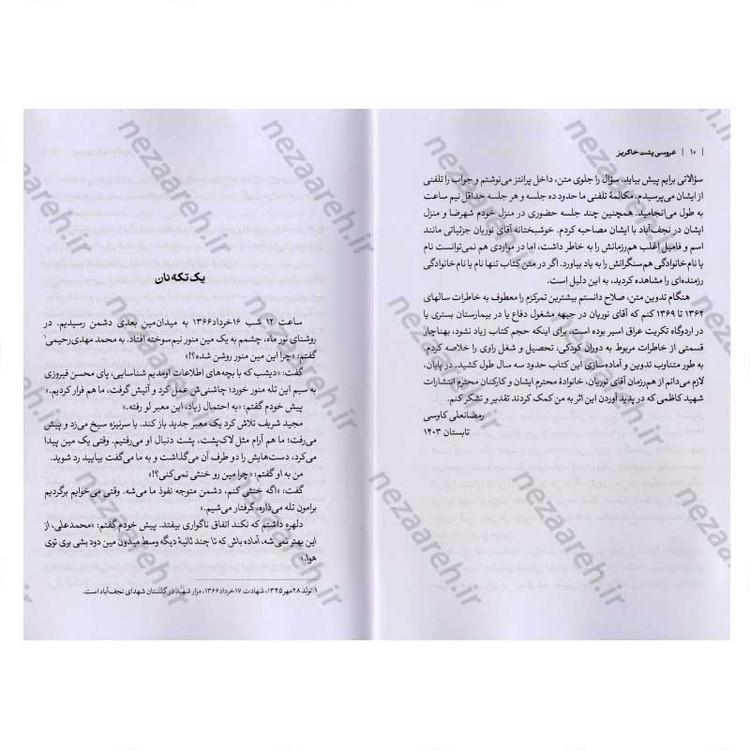 | ۱۰ | عروسی پشت خاکریز
سؤالاتی برایم پیش بیاید، سؤال را جلوی متن، داخل پرانتز می‌نوشتم و جواب را تلفنی
از ایشان می‌پرسیدم. مکالمهٔ تلفنی ما حدود ده جلسه و هر جلسه حداقل نیم ساعت
به طول می‌انجامید. همچنین چند جلسه حضوری در منزل خودم شهرضا و منزل
ایشان در نجف‌آباد با ایشان مصاحبه کردم. خوشبختانه آقای نوریان جزئیاتی مانند
اسم و فامیل اغلب هم‌رزمانش را به خاطر داشت، اما در مواردی هم نمی‌توانست نام
یا نام خانوادگی هم‌سنگرانش را به یاد بیاورد. اگر در متن کتاب تنها نام یا نام خانوادگی
رزمنده‌ای را مشاهده کردید، به این دلیل است.
هنگام تدوین متن، صلاح دانستم بیشترین تمرکزم را معطوف به خاطرات سالهای
۱۳۶۴ تا ۱۳۶۹ کنم که آقای نوریان در جبهه مشغول دفاع یا در بیمارستان بستری یا
در اردوگاه تکریت عراق اسیر بوده است. برای اینکه حجم کتاب زیاد نشود، به‌ناچار
قسمتی از خاطرات مربوط به دوران کودکی، تحصیل و شغل راوی را خلاصه کردم.
به طور متناوب تدوین و آماده‌سازی این کتاب حدود سه سال طول کشید. در پایان،
لازم می‌دانم از هم‌رزمان آقای نوریان، خانوادهٔ محترم ایشان و کارکنان محترم انتشارات
شهید کاظمی که در پدید آوردن این اثر به من کمک کردند تقدیر و تشکر کنم.
رمضانعلی کاوسی
تابستان ۱۴۰۳
یک تکه نان
ساعت ۱۲ شب ۱۶خرداد۱۳۶۶ به میدان‌مین بعدی دشمن رسیدیم. در
روشنای نور ماه، چشمم به یک مین منور نیم‌سوخته افتاد. به محمد مهدی رحیمی۱
گفتم: «چرا این مین منور روشن شده؟!»
گفت: «دیشب که با بچه‌های اطلاعات اومدیم شناسایی، پای محسن فیروزی
به سیم این تله منور خورد؛ چاشنی‌ش عمل کرد و آتیش گرفت. ما هم فرار کردیم.»
پیش خودم گفتم: «به احتمال زیاد، این معبر لو رفته.»
مجید شریف تلاش کرد یک معبر جدید باز کند. با سرنیزه سیخ می‌زد و پیش
می‌رفت؛ ما هم آرام مثل لاک‌پشت، پشت دنبال او می‌رفتیم. وقتی یک مین پیدا
می‌کرد، دست‌هایش را دو طرف آن می‌گذاشت و به ما می‌گفت بیایید رد شوید.
من به او گفتم: «چرا مین رو خنثی نمی‌کنی؟!»
گفت: «اگه خنثی کنم، دشمن متوجه نفوذ ما می‌شه. وقتی می‌خوایم برگردیم
برامون تله می‌ذاره، گرفتار می‌شیم.»
دلهره داشتم که نکند اتفاق ناگواری بیفتد. پیش خودم گفتم: «محمدعلی، از
این بهتر نمی‌شه، آماده باش که تا چند ثانیهٔ دیگه وسط میدون مین دود بشی بری توی
هوا.»
۱. تولد ۲۸مهر۱۳۴۵، شهادت ۱۷خرداد۱۳۶۶، مزار شهید در گلستان شهدای نجف‌آباد است.
nezaareh.ir
nezaareh.ir
nezaareh.ir
nezaareh.ir
nezaareh.ir
nezaareh.ir
nezaareh.ir
nezaareh.ir
nezaareh.ir
nezaareh.ir
nezaareh.ir